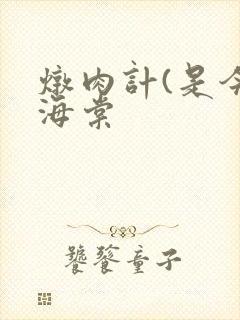 燉肉計(是今
海棠
饕餮童子